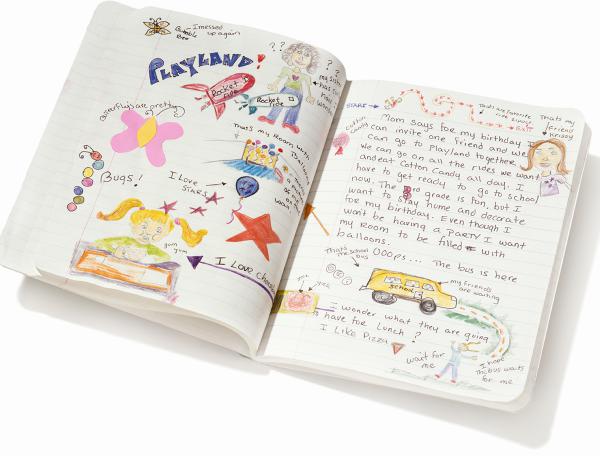 Bumble Bee
I messed up again
PLAYLAND!
? ?
? ?
my sis
has
Rocket ride
Rocket ride
Butterflys are pretty
That's my Room with
Bugs!
I Love
STARS
yum
yum
I LOVE Choco
START
That's my favorite
ride
EXIT
That's my
friend
Krissy
cotton
candy
Mom says for my birthday I
can invite one friend and we
can go to Playland together.
We can go on all the rides we want
and eat Cotton Candy all day. I
have to get ready to go to school
now. The 3rd grade is fun, but I
want to stay home and decorate
for my birthday. Even though I
won't be having a PARTY I want
my Room to be filled with
balloons.
OOOps... The bus is here
That's the
school bus
school
my friends
are waiting
yes
I wonder what they are going
to have for Lunch?
I Like Pizza
wait for
me
I hope
the bus waits
for me